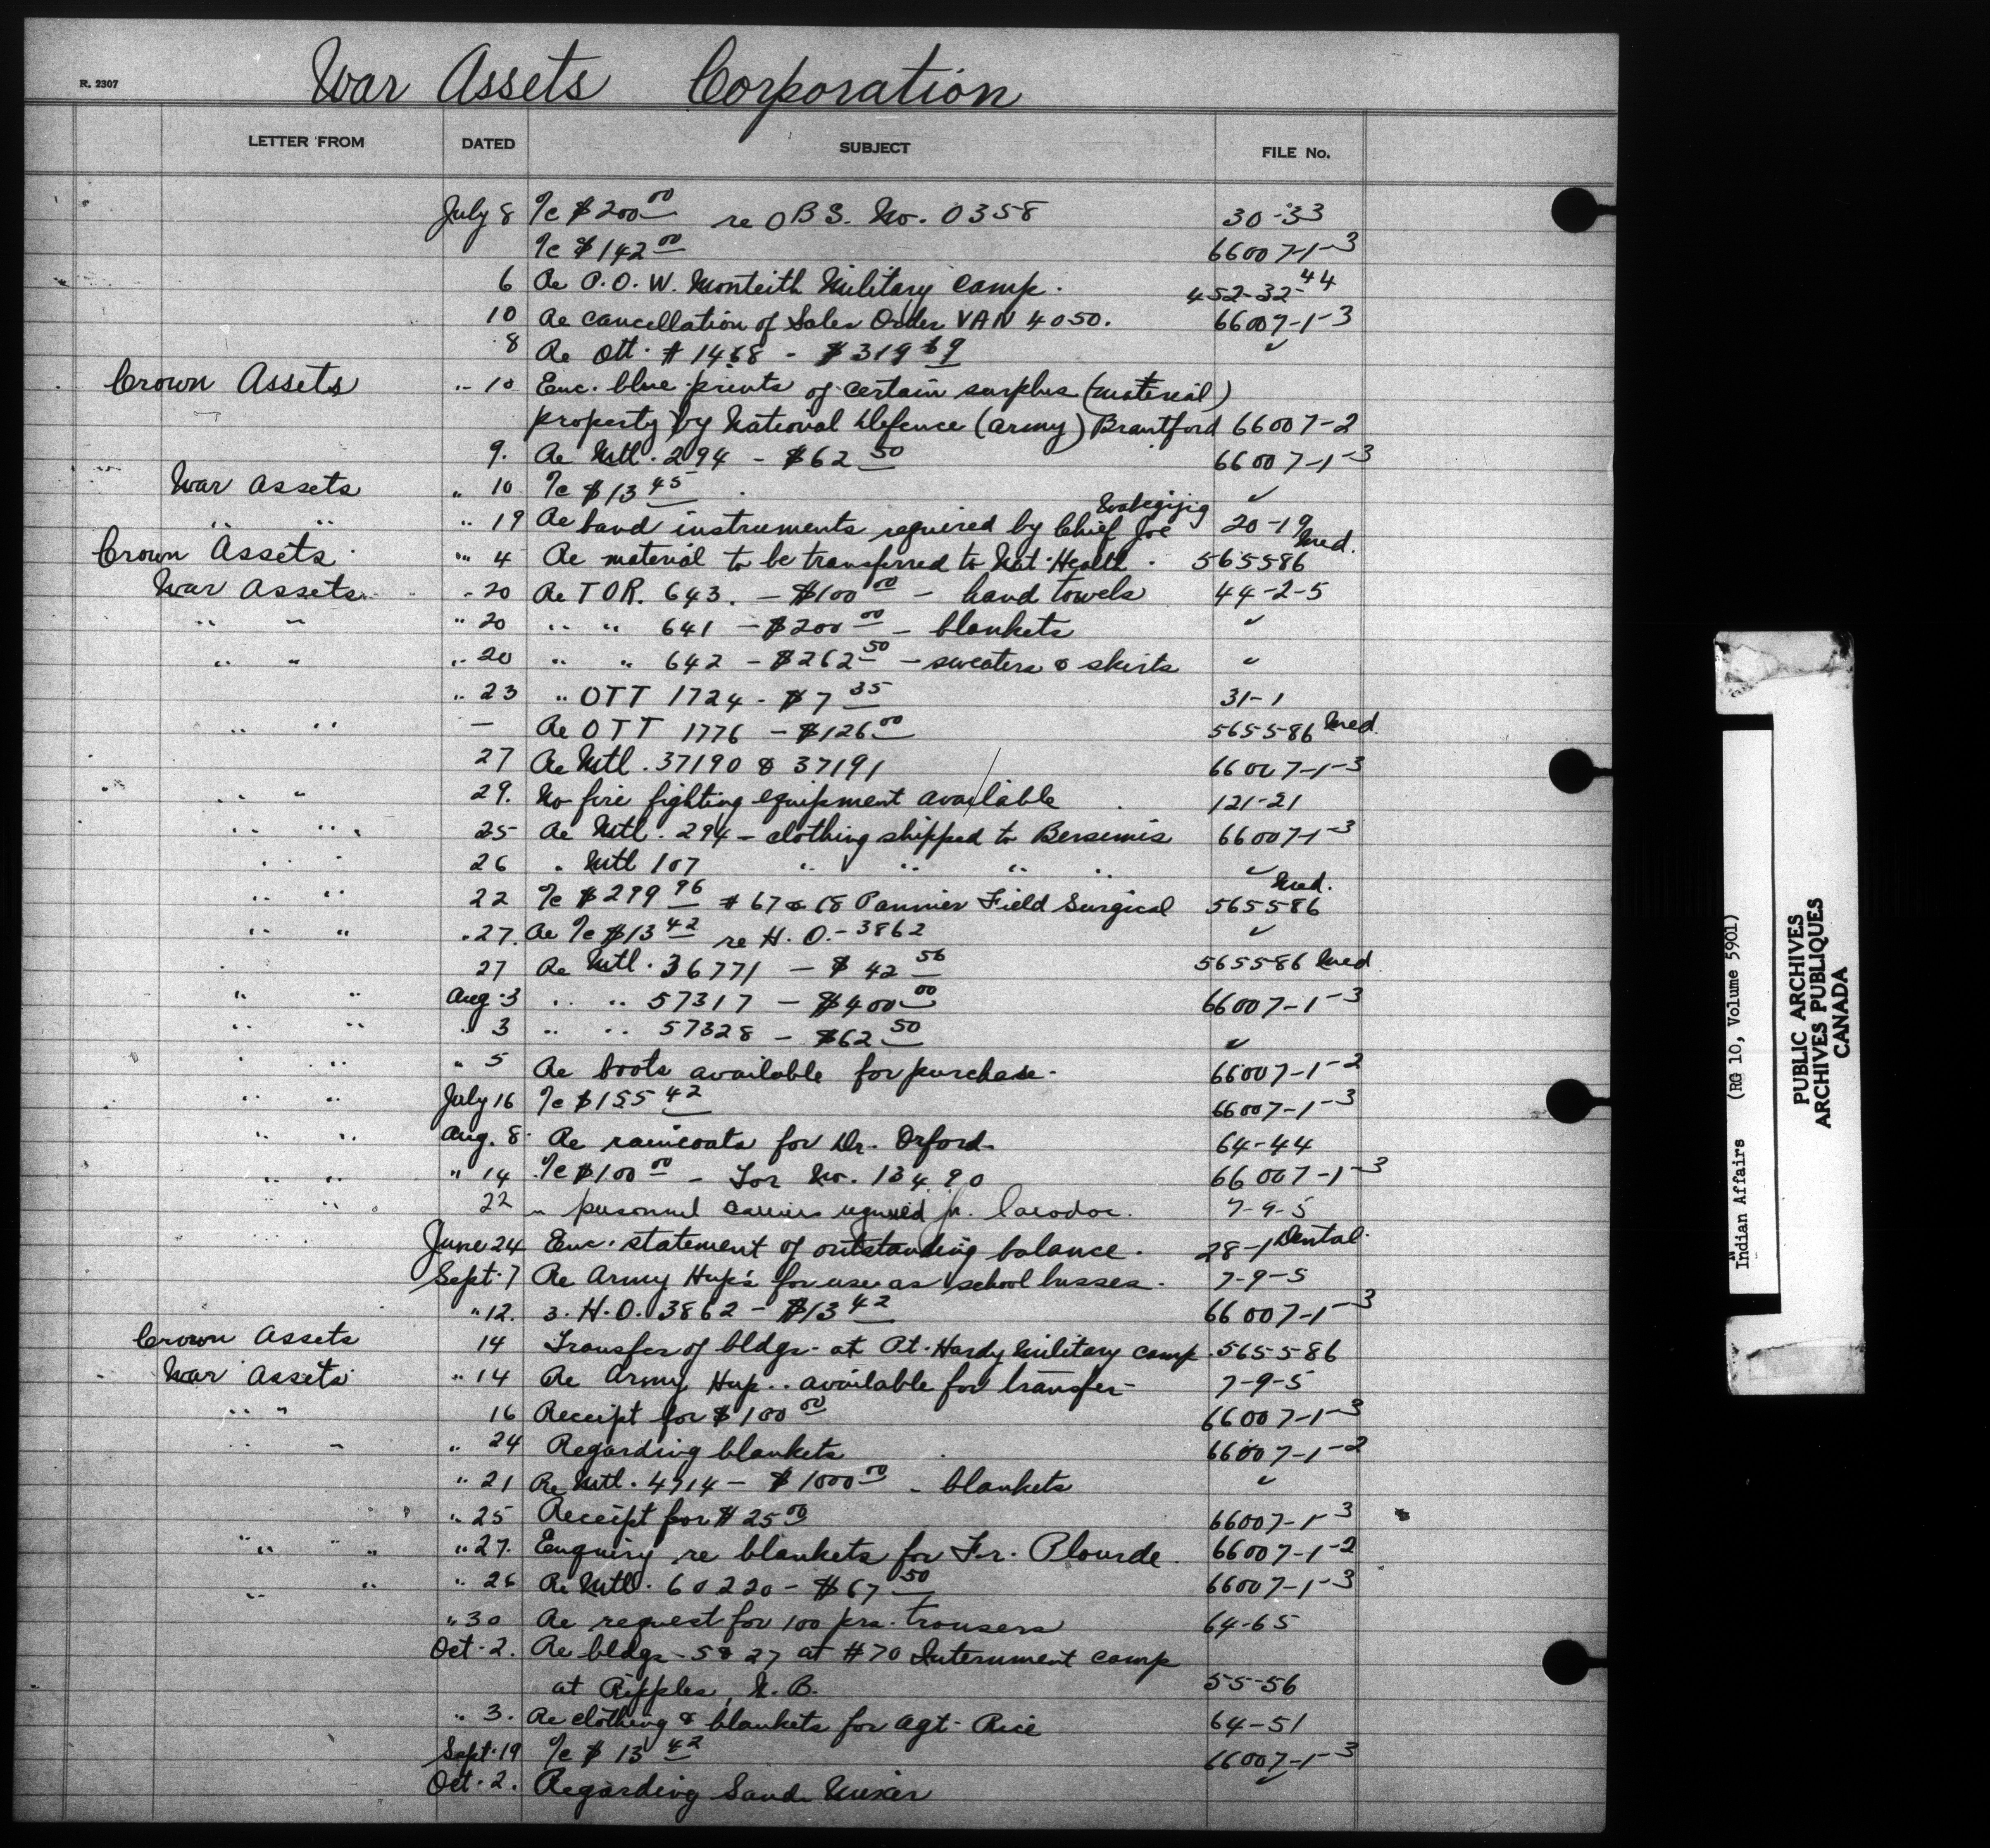 War Assets Corporation
R. 2307
LETTER FROM DATED SUBJECT FILE No.
July 8 %c $200 00 re OBS. No. 0358 30-33
%c $142 00 66007-1-3
6 Re P.O.W. Monteith Military Camp. 452-32-44
10 Re cancellation of Sales Order VAN 4050. 66007-1-3
8 Re Ott. # 1468 - $319 69 ✓
Crown Assets " 10 Enc. blue prints of certain surplus (material)
property by National Defence (army) Brantford 66007-2
9. Re Mtl. 294 - $62 50 66007-1-3
War Assets " 10 %c $13 45 ✓
" " " 19 Re band instruments required by Chief Joe 20-19
Crown Assets " 4 Re material to be transferred to Nat. Health. 565586 Med.
War Assets " 20 Re TOR. 643. - $100 00 - hand towels 44-2-5
" " " 20 " " 641 - $200 00 - blankets ✓
" " " 20 " " 642 - $262 50 - sweaters & skirts ✓
" 23 " OTT 1724 - $7 35 31-1
" " — Re OTT 1776 - $126 00 565586 Med.
27 Re Mtl. 37190 & 37191 66007-1-3
" " 29. No fire fighting equipment available 121-21
" " 25 Re Mtl. 294 - clothing shipped to Bersimis 66007-1-3
" " 26 " Mtl 107 " " " " ✓
" " 22 %c $299 96 # 67 & 68 Pannier Field Surgical 565586 Med.
" " " 27. Re %c $13 42 re H.O. - 3862 ✓
" " 27 Re Mtl. 36771 - $42 56 565586 Med.
" " Aug. 3 " " 57317 - $400 00 66007-1-3
" " " 3 " " 57328 - $62 50 ✓
" " " 5 Re boots available for purchase - 66007-1-2
" " July 16 %c $155 42 66007-1-3
" " Aug. 8 Re raincoats for Dr. Orford - 64-44
" " " 14 %c $100 00 - Tor No. 13490 66007-1-3
" " 22 " personnel carriers required for Caradoc. 7-9-5
June 24 Enc. statement of outstanding balance. 28-1 Dental.
Sept. 7 Re Army Hup's for use as school busses. 7-9-5
" 12. 3. H.O. 3862 - $13 42 66007-1-3
Crown Assets 14 Transfer of bldgs. at Pt. Hardy Military Camp. 565586
War Assets " 14 Re Army Hup.. available for transfer - 7-9-5
" " 16 Receipt for $100 00 66007-1-3
" " " 24 Regarding blankets 66007-1-2
" 21 Re Mtl. 4714 - $1000 00 - blankets ✓
" 25 Receipt for $25 00 66007-1-3
" " " 27. Enquiry re blankets for Fr. Plourde. 66007-1-2
" " " 26 Re Mtl. 60220 - $67 50 66007-1-3
" 30 Re request for 100 prs. trousers 64-65
Oct. 2. Re bldgs - 5 & 27 at #70 Internment camp
at Ripples, N.B. 55-56
" 3. Re clothing & blankets for Agt. Rice 64-51
Sept. 19 %c $13 42 66007-1-3
Oct. 2. Regarding Sand Mixer ✓
Indian Affairs (RG 10, Volume 5901)
PUBLIC ARCHIVES
ARCHIVES PUBLIQUES
CANADA